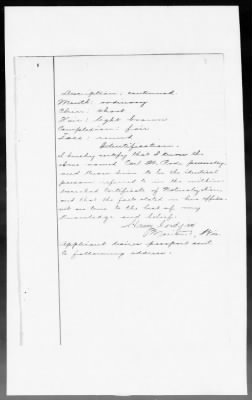 Description, continued.
Mouth: ordinary
Chin: short
Hair: light brown
Complexion: fair
Face: round
Identification.
I hereby certify that I know the
above named Carl M. personally,
and know him to be the identical
person referred to in the within
described Certificate of Naturalization,
and that the facts stated in his affida-
vit are true to the best of my
knowledge and belief.
Applicant desires passport sent
to following address: